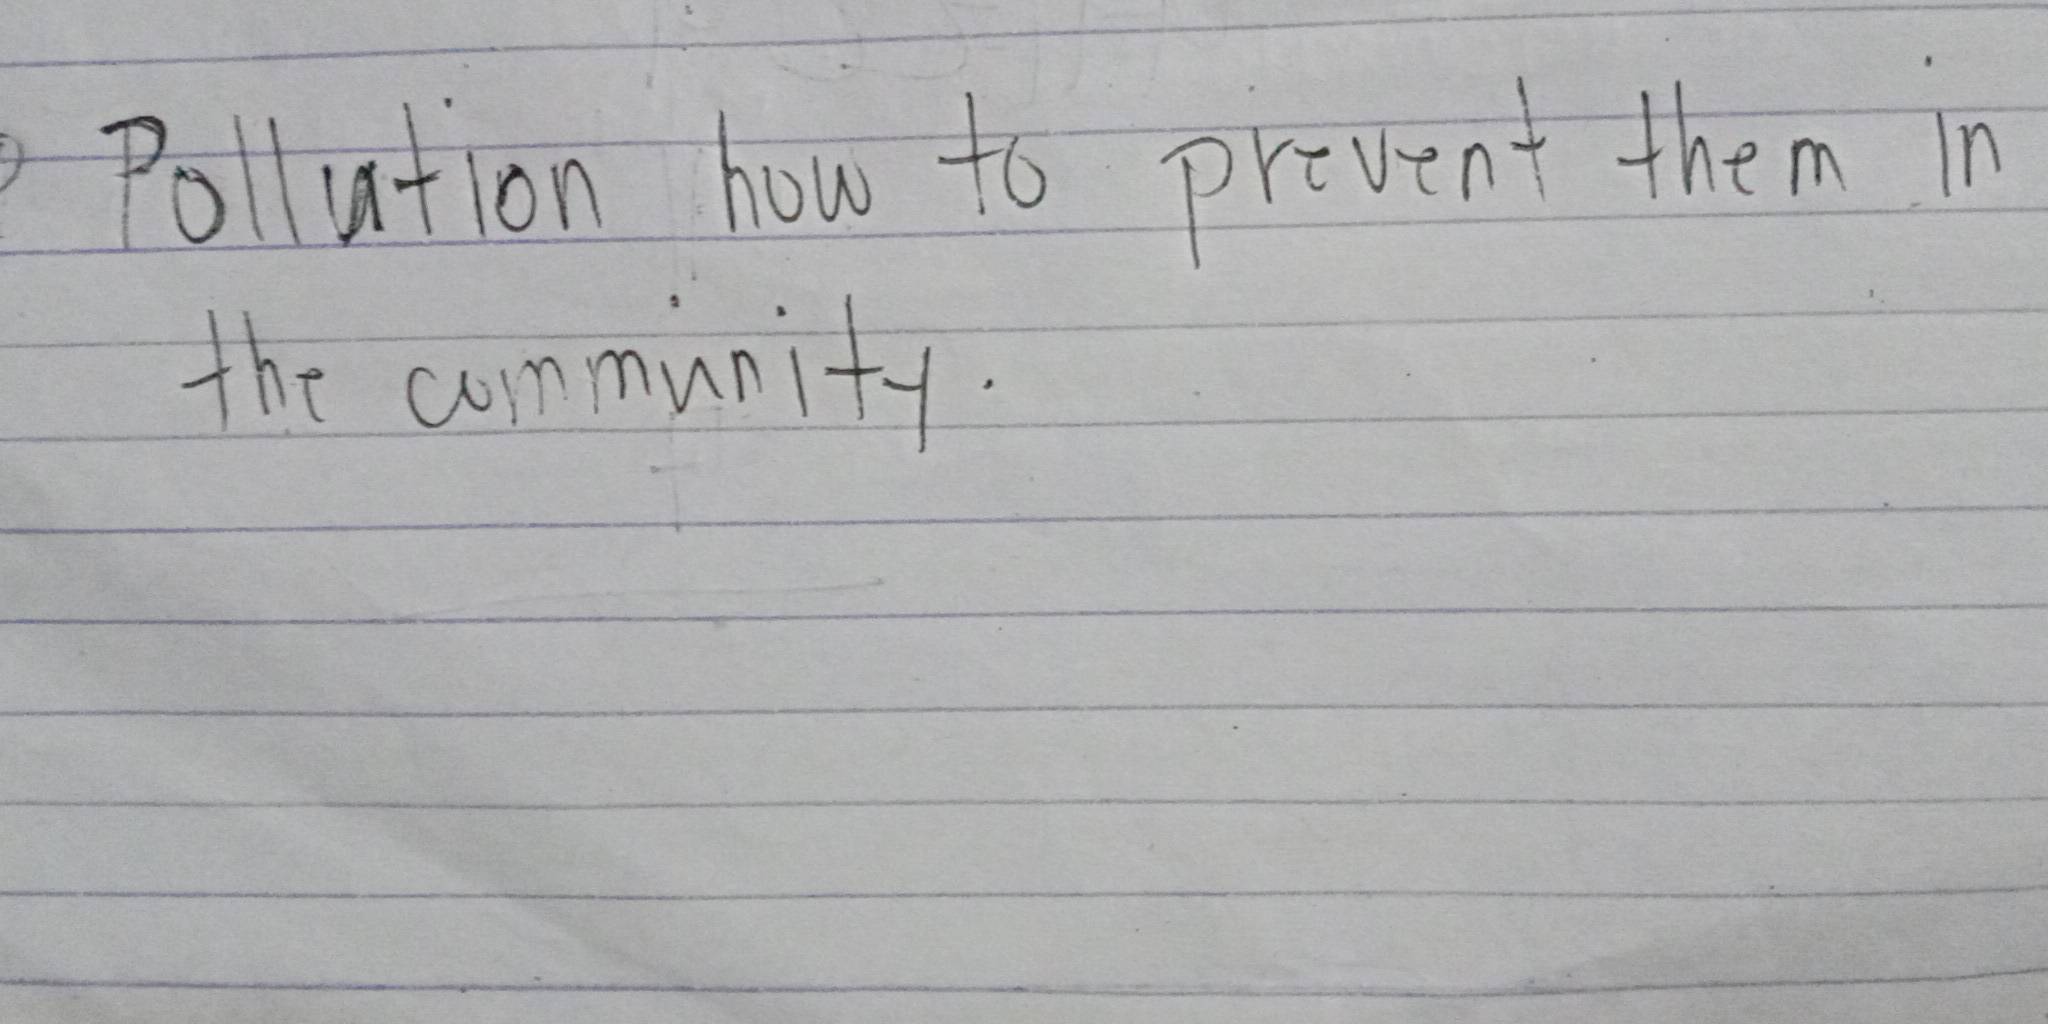 Pollution how to prevent them in
the community.